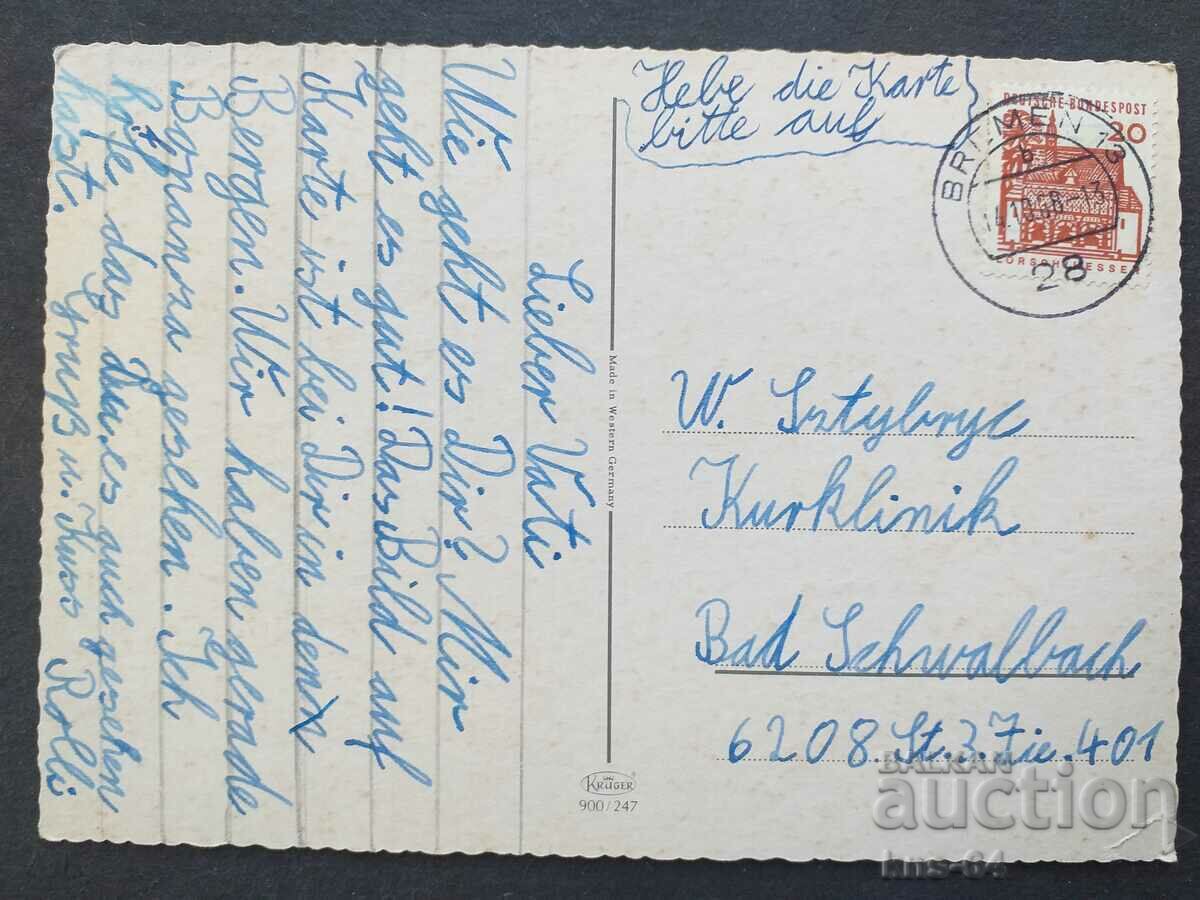 Hebe die Karte
bitte auf
DEUTSCHE BUNDESPOST
20
LORSCH HESSEN
BREMEN 13
b
28
Lieber Vati
Wie geht es Dir? Mir
geht es gut! Das Bild auf
Karte ist bei Dir in den
Bergen. Wir haben gerade
Bonanza gesehen. Ich
hoffe das Du es auch gesehen
hast. Gruß u. Kuss Rolli
Made in Western Germany
KRÜGER
900/247
W. Sztybryc
Kurklinik
Bad Schwalbach
6208. St. 3. Zie. 401
BALKAN
auction
kns-64